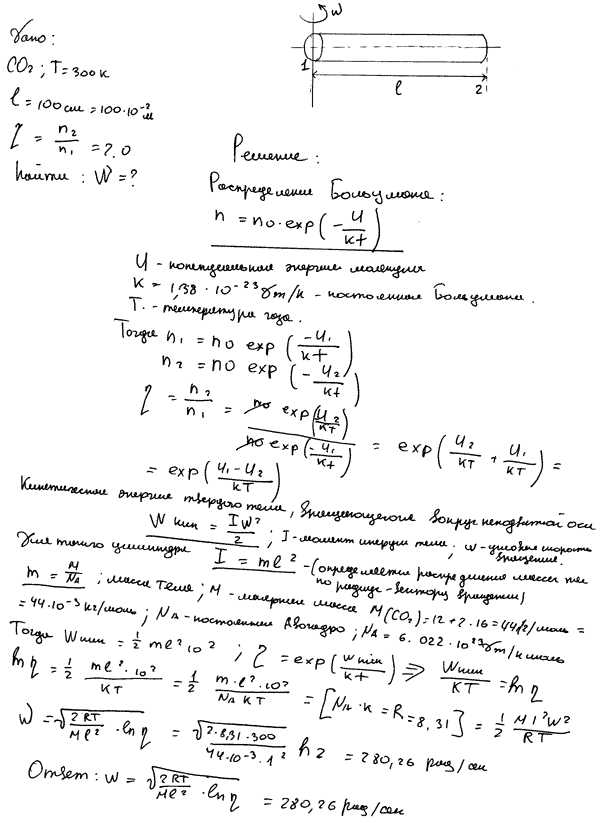 Дано:
CO₂; T=300к
l = 100 см = 100·10⁻² м
η = n₂/n₁ = 2.0
Найти: W = ?
W
1
l
2
Решение:
Распределение Больцмана:
n = n₀·exp(-U/kt)
U - потенциальная энергия молекулы
K = 1,38·10⁻²³ Дж/к - постоянная Больцмана.
T. - температура газа.
Тогда n₁ = n₀ exp(-U₁/kt)
n₂ = n₀ exp(-U₂/kt)
η = n₂/n₁ = n₀ exp(U₂/KT)/n₀ exp(-U₁/kt) = exp(U₂/KT + U₁/KT) =
= exp(U₁-U₂/KT)
Кинетическая энергия твердого тела, вращающегося вокруг неподвижной оси
W кин = IW²/2; I-момент инерции тела; w-угловая скорость вращения.
Для тонкого цилиндра I = ml² - (определяется распределения массы тела по радиус-вектору вращения)
m = M/NA; масса тела; M - молярная масса M(CO₂)=12+2·16=44г/моль =
= 44·10⁻³ кг/моль; NA - постоянная Авогадро; NA = 6.022·10²³ Дж/к моль
Тогда Wкин = 1/2 ml²ω²; η = exp(Wкин/kt) ⇒ Wкин/KT = ln η
ln η = 1/2 ml²·ω²/KT = 1/2 m·l²·ω²/NA KT = [NA·K = R = 8,31] = 1/2 Ml²W²/RT
W = √(2RT/Ml²·ln η) = √(2·8,31·300/44·10⁻³·1²) ln2 = 280,26 рад/сек
Ответ: W = √(2RT/Ml²·ln η) = 280,26 рад/сек